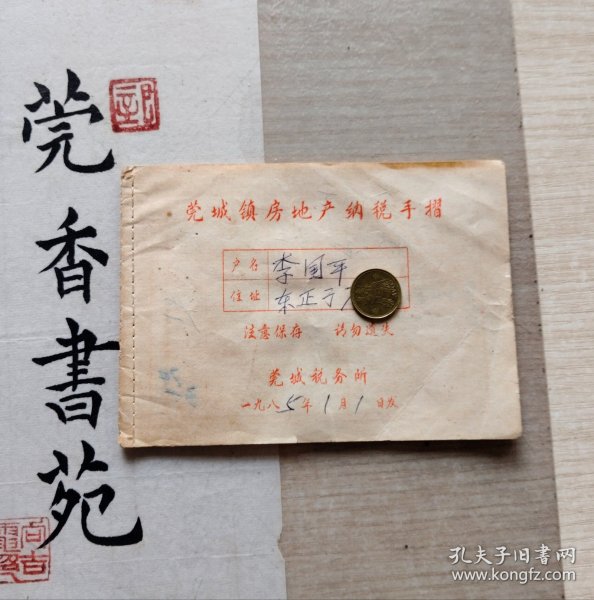 莞香書苑
莞城镇房地产纳税手摺
户名 李国平
住址 东正于
注意保存 请勿遗失
莞城税务所
一九八5年1月1日发
孔夫子旧书网
www.kongfz.com